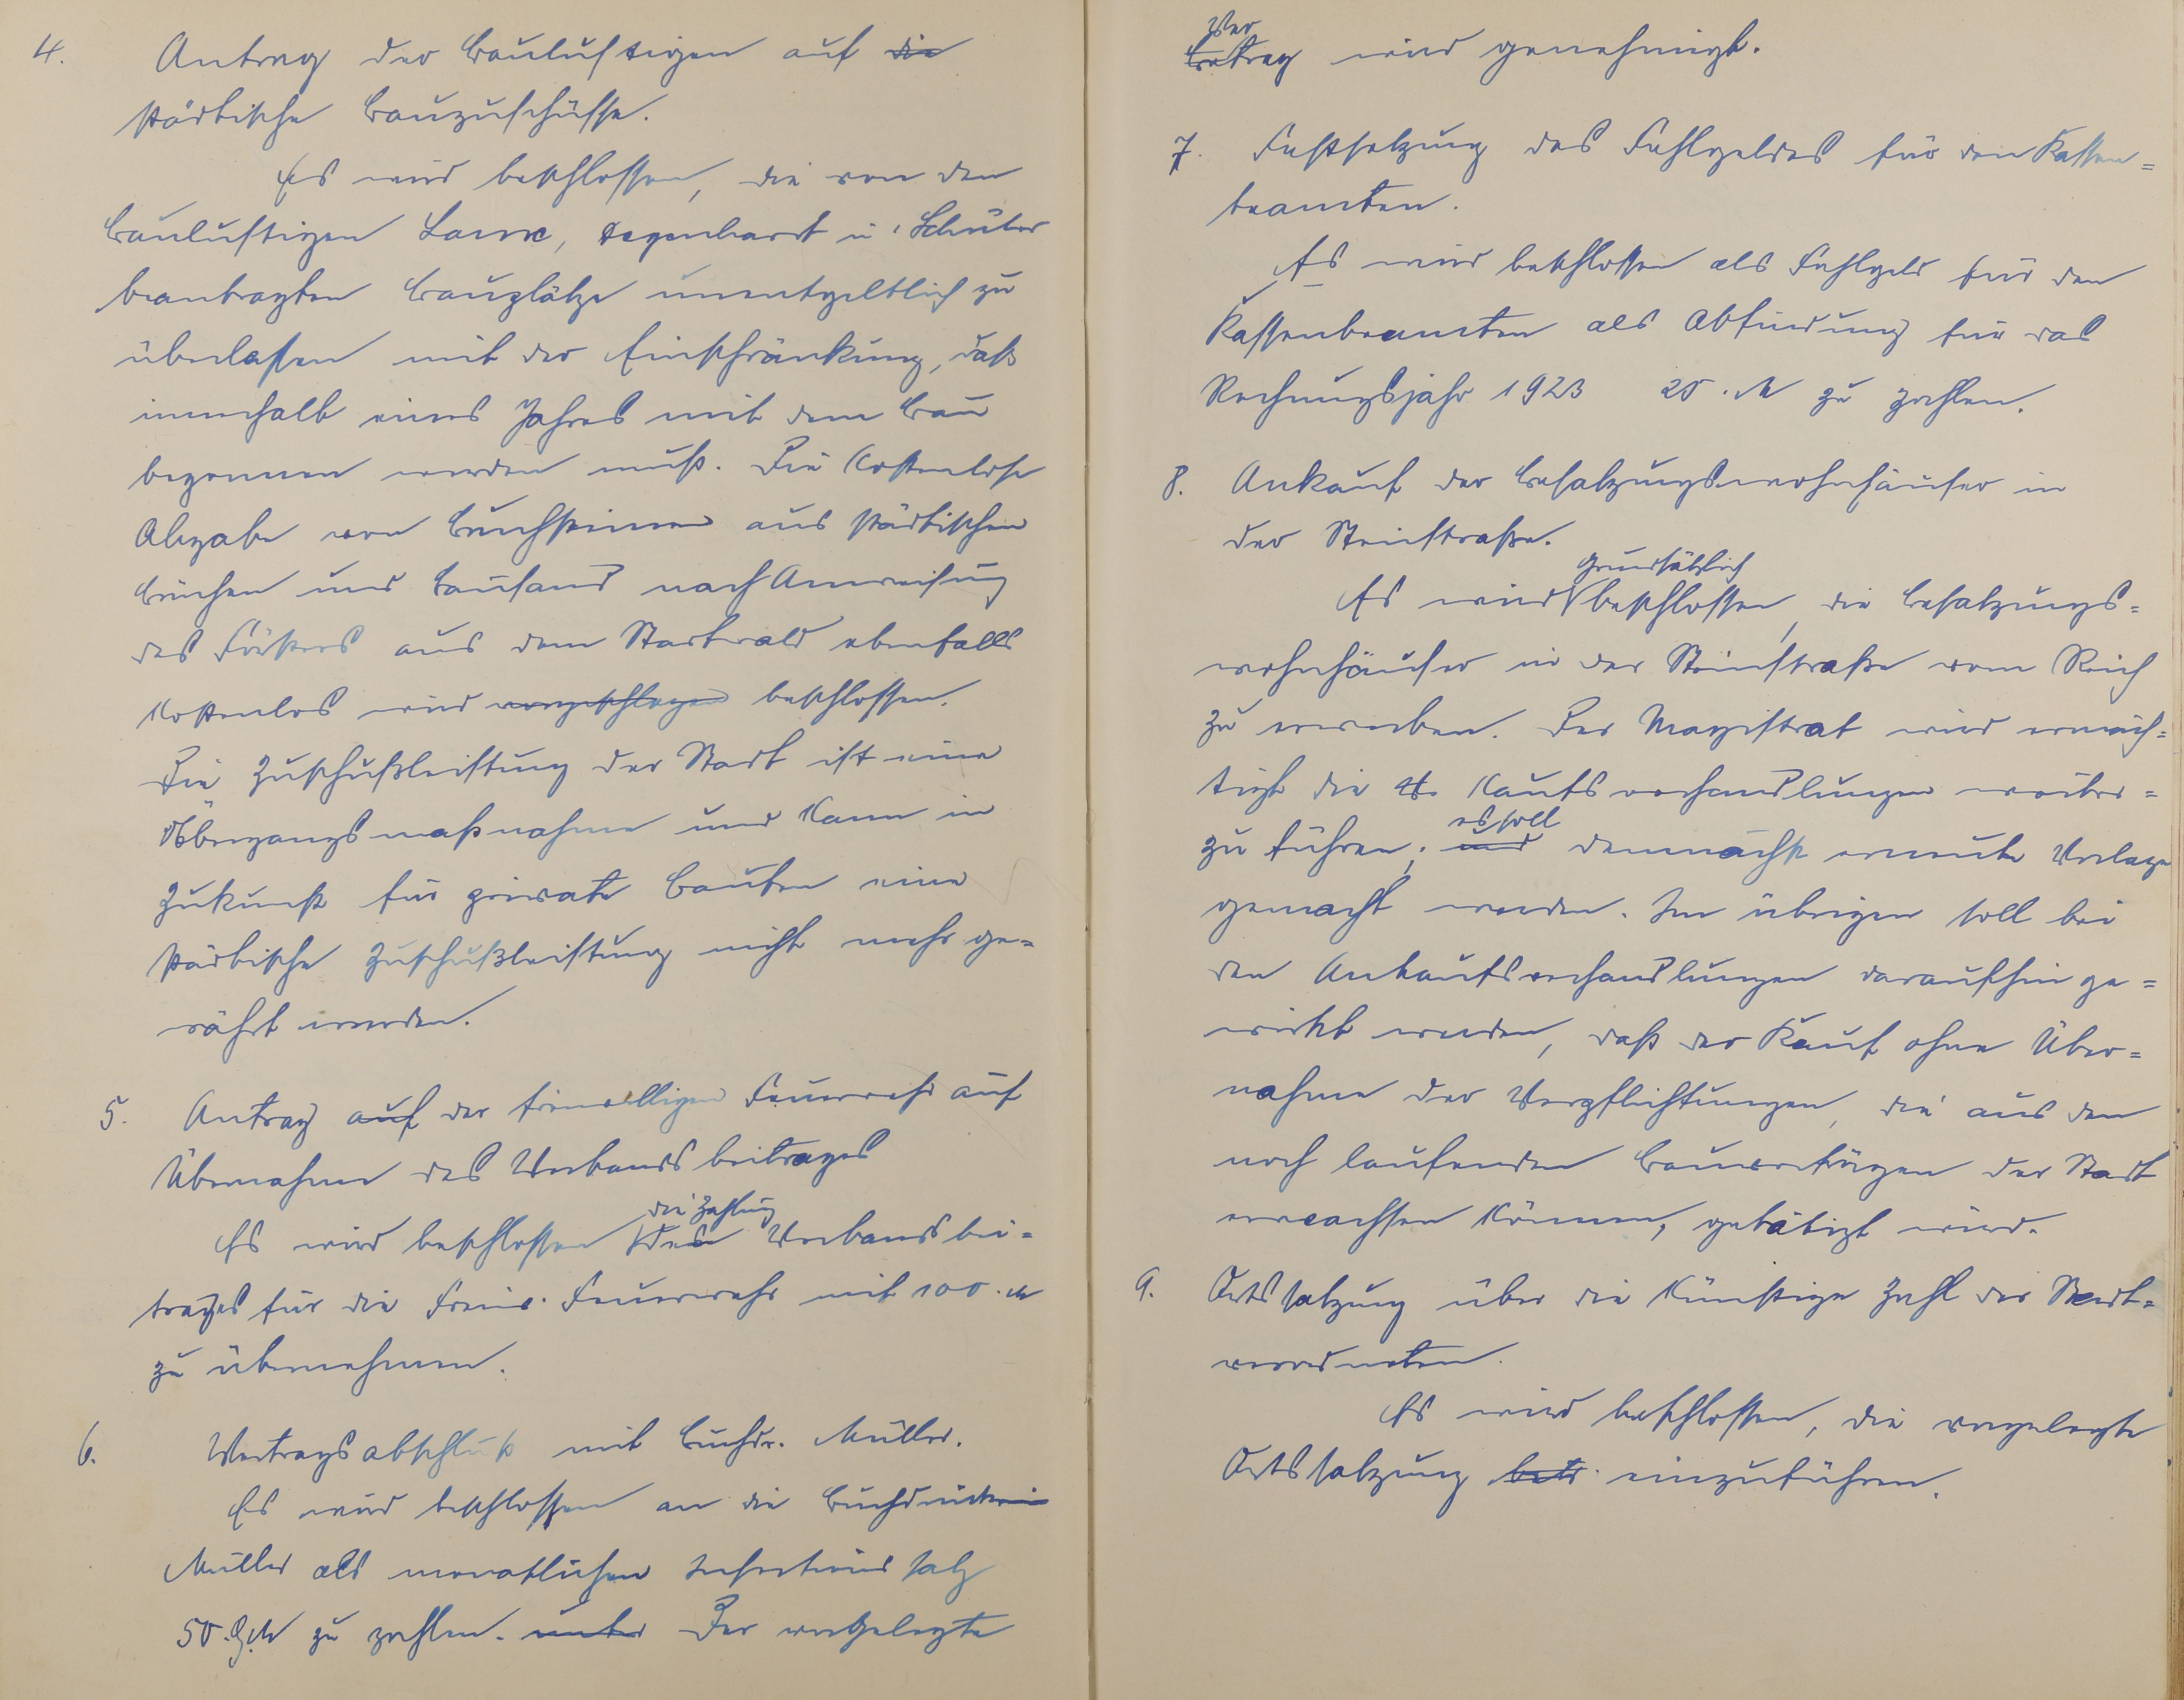 4. Antrag der Baulustigen auf die
städtische Bauzuschüsse.
Es wird beschlossen, die von den
Baulustigen Degenhardt u. Schüler
beantragten Bauplätze unentgeltlich zu
überlassen mit der Einschränkung, daß
innerhalb eines Jahres mit dem Bau
begonnen werden muß. Die kostenlose
Abgabe von Bruchsteinen aus städtischen
Brüchen und Bausand nach Anweisung
des Försters aus dem Stadtwald ebenfalls
kostenlos wird vorgeschlagen beschlossen.
Die Zuschußleistung der Stadt ist eine
Übergangsmaßnahme und kann in
Zukunft für private Bauten eine
städtische Zuschußleistung nicht mehr ge=
währt werden.
5. Antrag auf der freiwilligen Feuerwehr auf
Übernahme des Verbandsbeitrages
die Zahlung
Es wird beschlossen des Verbandsbei=
trages für die Freiw. Feuerwehr mit 100 M
zu übernehmen.
6. Vertragsabschluß mit Buchdr. Müller.
Es wird beschlossen an die Buchdruckerei
Müller als monatlichen Insertionssatz
50 G.M zu zahlen. unter Der vorgelegte
Ver
Betrag wird genehmigt.
7. Festsetzung des Fehlgeldes für den Kassen=
beamten.
Es wird beschlossen als Fehlgeld für den
Kassenbeamten als Abfindung für das
Rechnungsjahr 1923 20 M zu zahlen.
8. Ankauf der Besatzungswohnhäuser in
der Steinstraße.
grundsätzlich
Es wird beschlossen, die Besatzungs=
wohnhäuser in der Steinstraße vom Reich
zu erwerben. Der Magistrat wird ermäch=
tigt die Kaufsverhandlungen weiter=
es soll
zu führen; und demnächst erneute Vorlage
gemacht werden. Im übrigen soll bei
den Ankaufsverhandlungen daraufhin ge=
wirkt werden, daß der Kauf ohne Über=
nahme der Verpflichtungen, die aus den
noch laufenden Bauverträgen der Stadt
erwachsen können, getätigt wird.
9. Ortssatzung über die künftige Zahl der Stadt=
verordneten.
Es wird beschlossen, die vorgelegte
Ortssatzung betr. einzuführen.